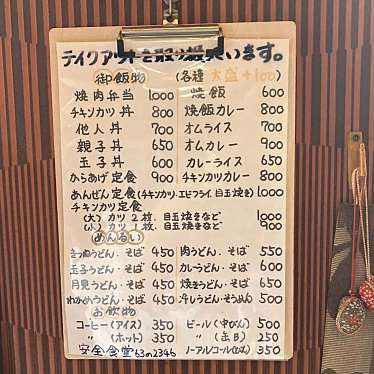 テイクアウトを取り扱ています。
御飯物 (各種 大盛+100)
焼肉弁当 1,000 焼飯 600
チキンカツ丼 800 焼飯カレー 800
他人丼 700 オムライス 700
親子丼 650 オムカレー 900
玉子丼 600 カレーライス 650
からあげ定食 900 チキンカツカレー 800
あんぜん定食(チキンカツ・エビフライ、目玉焼き) 1,000
チキンカツ定食
(大) カツ2枚、目玉焼きなど 1,000
(小) カツ1枚、目玉焼きなど 900
めんるい
きつねうどん・そば 450 肉うどん・そば 550
玉子うどん・そば 450 カレーうどん・そば 600
月見うどん・そば 450 焼きうどん・そば 650
わかめうどん・そば 450 冷しうどん・そうめん 500
お飲物
コーヒー(アイス) 350 ビール(中びん) 500
〃 (ホット) 350 〃 (缶B) 250
安全食堂 63の2346 ノーアルコール(びん) 350